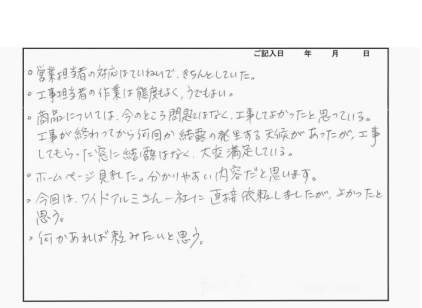 ご記入日　年　月　日
○ 営業担当者の対応はていねいで、きちんとしていた。
○ 工事担当者の作業は態度もよく、うでもよい。
○ 商品については、今のところ問題はなく、工事してよかったと思っている。
工事が終わってから何回か結露の発生する天候があったが、工事
してもらった窓に結露はなく、大変満足している。
○ ホームページ見れた。分かりやすい内容だと思います。
○ 今回は、ワイドアルミさん一社に直接依頼しましたが、よかったと
思う。
○ 何かあれば頼みたいと思う。